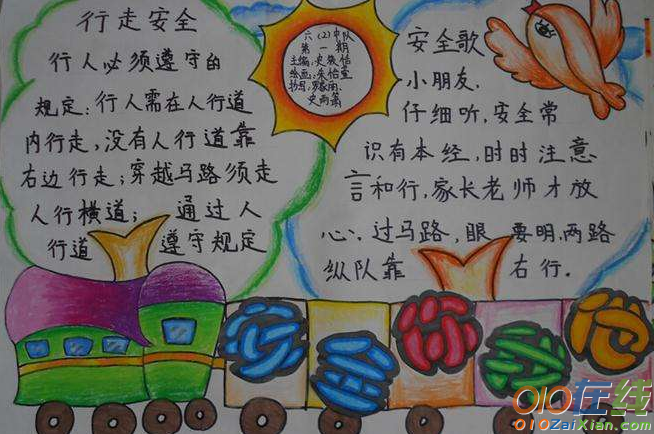 行走安全
行人必须遵守的
规定：行人需在人行道
内行走，没有人行道靠
右边行走；穿越马路须走
人行横道； 通过人
行道 遵守规定
六（2）中队
第一期
主编：史 怡
绘画：朱怡萱
抄写：罗 雨
史雨
安全歌
小朋友.
仔细听，安全常
识有本经，时时注意
言和行，家长老师才放
心。过马路，眼 要明，两路
纵队靠 右行.
安全你我他
010在线
010ZaiXian.com